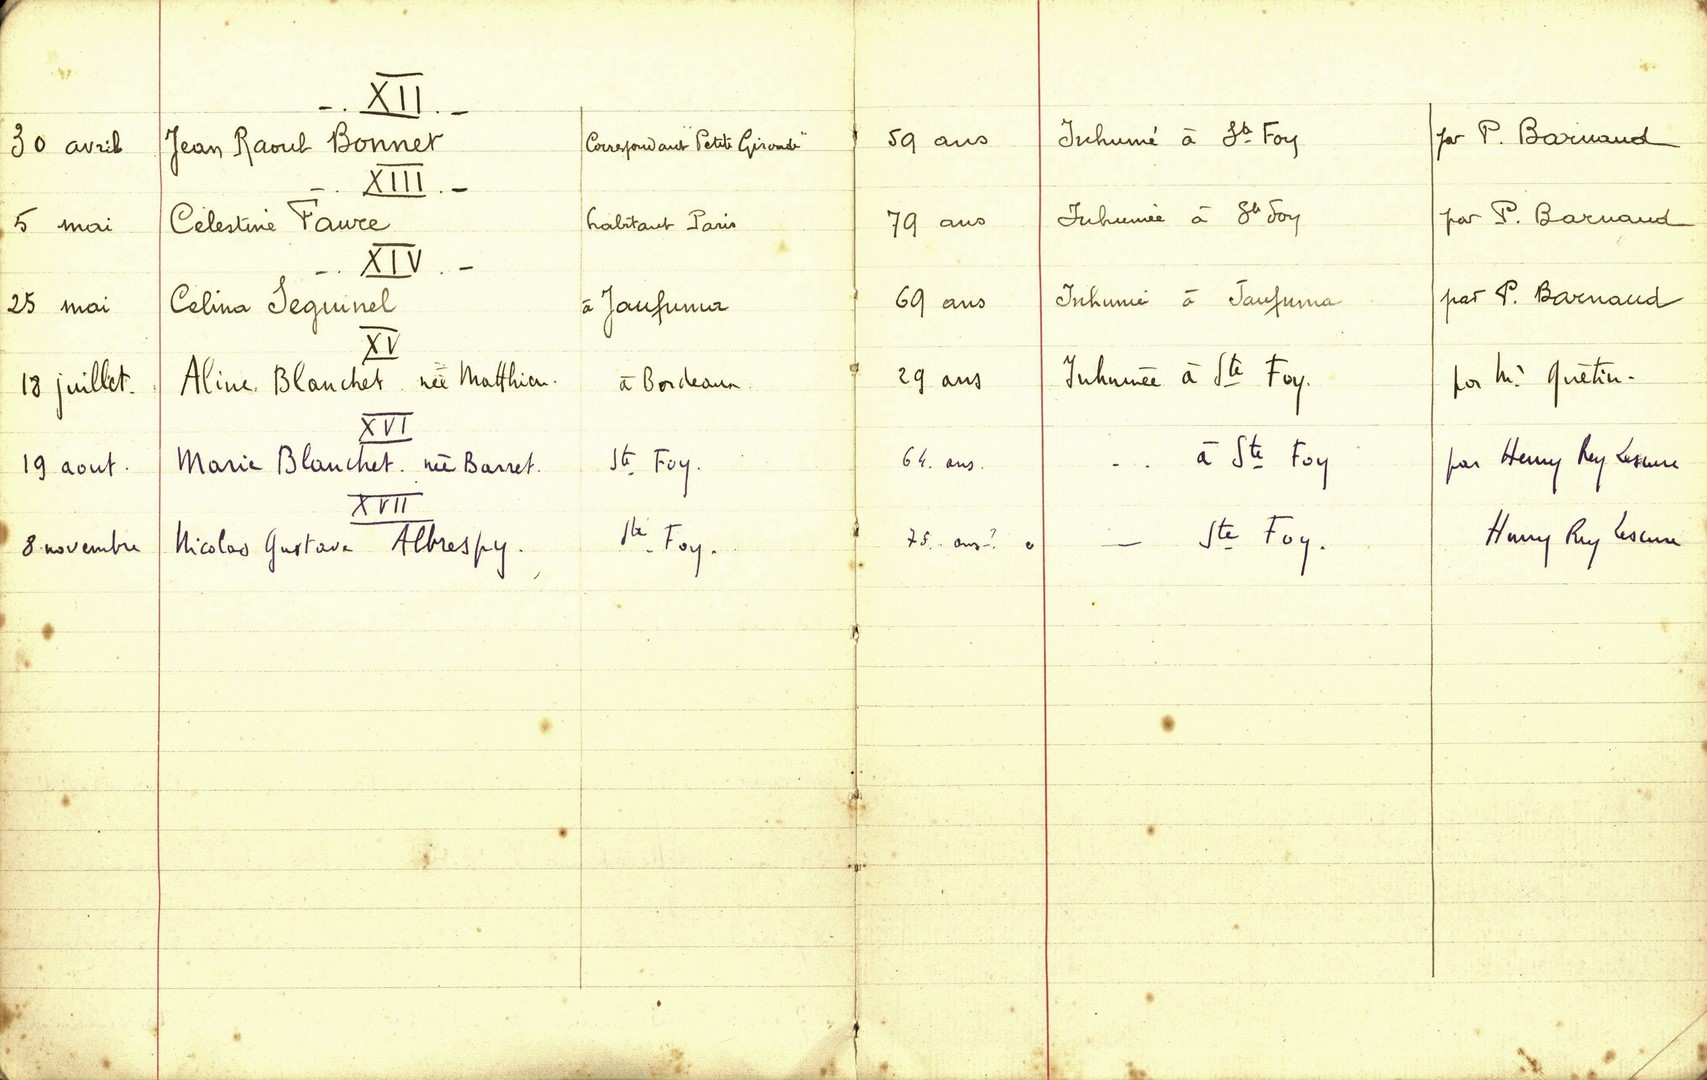 -. XII. -
30 avril Jean Raoul Bonnet Correspondant "Petite Gironde" 59 ans Inhumé à Ste Foy par P. Barnaud
-. XIII. -
5 mai Célestine Faure habitant Paris 79 ans Inhumée à Ste Foy par P. Barnaud
-. XIV. -
25 mai Celina Seguinel à Jaufuma 69 ans Inhumé à Jaufuma par P. Barnaud
XV
18 juillet. Aline Blanchet née Matthieu. à Bordeaux. 29 ans Inhumée à Ste Foy. par Mr Quétin.
XVI
19 aout. Marie Blanchet. née Barret. Ste Foy. 64. ans. - . à Ste Foy par Henry Rey Lescure
XVII
8 novembre Nicolas Gustave Albrespy. Ste Foy. 75. ans? — Ste Foy. Henry Rey Lescure